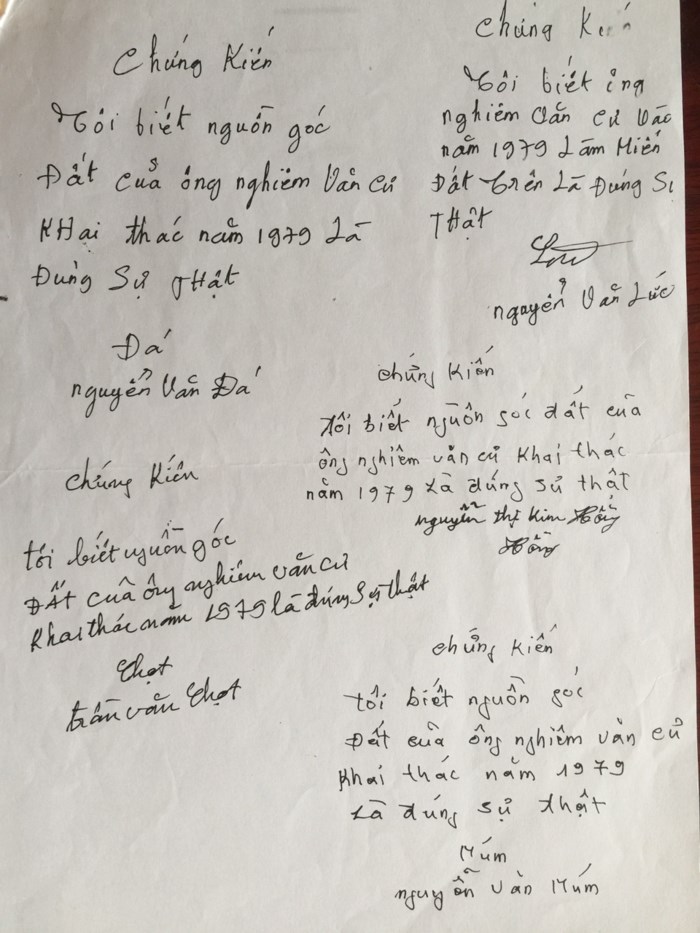 Chứng Kiến
Tôi biết nguồn gốc
Đất của ông nghiêm Văn Cứ
KHại thác năm 1979 Là
Đuńg Sự Thật
Đá
nguyễn Văn Đá
Chứng Kiến
Tôi biết ông
nghiêm Văn Cư Vào
năm 1979 Làm Miến
Đất Trên Là Đúng Sự
THật
nguyễn Văn Lức
chứng kiến
tôi biết nguồn gốc đất của
ông nghiêm văn cử Khai thác
năm 1979 Là đứng sử thật
nguyễn thị Kim Hồng
Hồng
chứng Kiến
tôi biết nguồn gốc
ĐẤT của ông nghiêm văn cư
Khai thác năm 1979 là đúng Sự thật
Chọt
trần văn Chọt
chứng Kiến
tôi biết nguồn gốc
Đất của ông nghiêm văn cử
Khai thác năm 1979
Là đứng sử thật
Múm
nguyễn Văn Múm